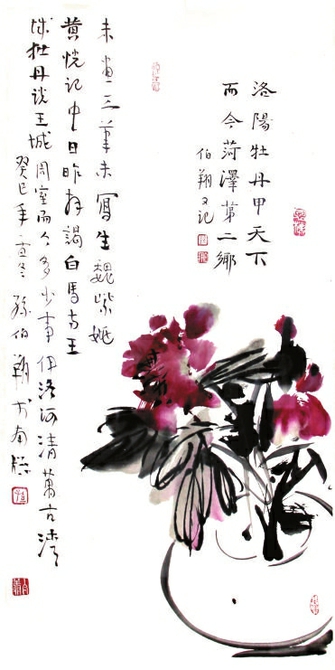 洛陽牡丹甲天下
而今菏澤第二鄉
伯翔又記
未畫工筆未寫生魏紫姚
黃恍記中日昨拜謁白馬寺王
城牡丹說王城周室而今多少事伊洛河清萬古灣
癸巳年雪冬孫伯翔於南